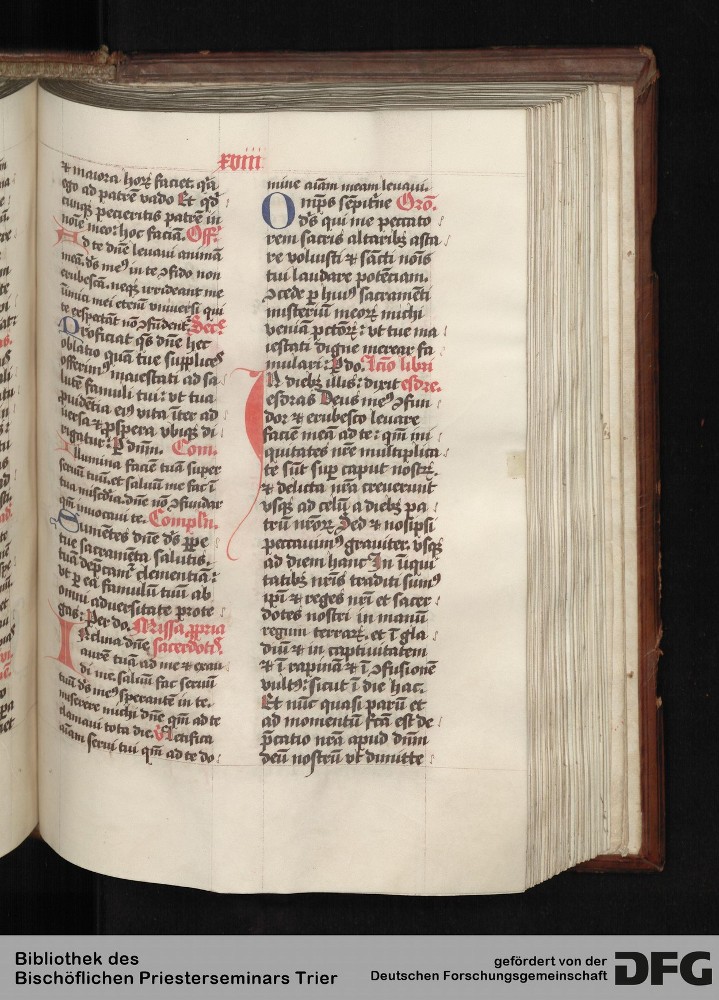 xviii
⁊ maiora horꝝ faciet. q̄a
ego ad patrē vado Et qd̄
cūqꝫ pecieritis patrē in
noīe meo: hoc faciā. Off̄.
Ad te dn̄e leuaui animā
meā. ds̄ meꝰ in te ꝯfido non
erubescā. neqꝫ irrideant me
inimici mei etenī vniuersi qui
te exspectāt nō ꝯfundent᷑ Secr̄
Proficiat qs̄ dn̄e hec
oblatio quā tue supplices
offerimꝰ maiestati ad sa
lutē famuli tui: vt tua
ꝓuidentia eiꝰ vita īter ad
uersa ⁊ ꝓspera vbiqꝫ di
rigatur: P dn̄m. Com̄.
Illumina faciē tuā super
seruū tuū. et saluū me fac ī
tua misc̄dia. dn̄e nō ꝯfundar
qm̄ inuocaui te. Compln̄.
Sumētes dn̄e ds̄ ꝑpe
tue sacramēta salutis.
tuā dep̄camr̄ clementiā:
vt ꝑ ea famulū tuū ab
omni aduersitate prote
gas: Per do. Missa ꝓpria
Inclina dn̄e sacerdotis
aurē tuā ad me ⁊ exau
di me. saluū fac seruū
tuū ds̄ meꝰ sperantē in te.
miserere michi dn̄e qm̄ ad te
clamaui tota die. Letifica
aīam serui tui qm̄ ad te do
mine aīam meam leuaui.
Omps̄ sēpitn̄e Orō.
ds̄ qui me peccato
rem sacris altaribꝫ asta
re voluisti ⁊ sācti noīs
tui laudare potēciam.
ꝯcede ꝑ huiꝰ sacramēti
misteriū meorꝝ michi
veniā pctōrꝝ: vt tue ma
iestati digne merear fa
mulari: P do. Lcīo libri
In diebꝫ illis: dixit esdre.
esdras Deus meꝰ ꝯfun
dor ⁊ erubesco leuare
faciē meā ad te: qm̄ ini
quitates nr̄e multiplica
te sūt suꝑ caput nostrꝝ.
⁊ delicta nr̄a creuerunt
vsqꝫ ad celū a diebꝫ pa
trū nr̄orꝝ Sed ⁊ nosipsi
peccauimꝰ grauiter. vsqꝫ
ad diem hanc In iniqui
tatibꝫ nr̄is traditi sumꝰ
ip̄i ⁊ reges nr̄i et sacer
dotes nostri in manū
regum terrarꝝ. et ī gla
diū ⁊ in captiuitatem
⁊ ī rapinā ⁊ ī ꝯfusionē
vultꝰ: sicut ī die hac.
Et nūc quasi parū et
ad momentū fc̄ā est de
p̄catio nr̄a apud dn̄m
deū nostrū vt dimitte
Bibliothek des
Bischöflichen Priesterseminars Trier
gefördert von der
Deutschen Forschungsgemeinschaft
DFG